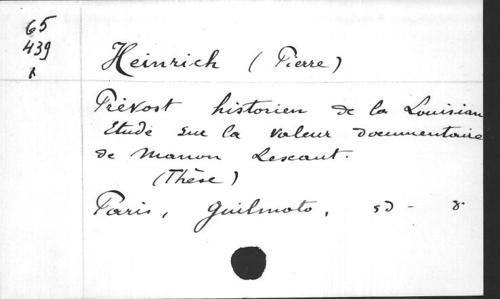 65
439
Heinrich (Pierre)
Prévost historien de la Louisian
Etude sur la valeur documentaire
de Manon Lescaut.
(Thèse)
Paris, Guilmoto, sd - 8